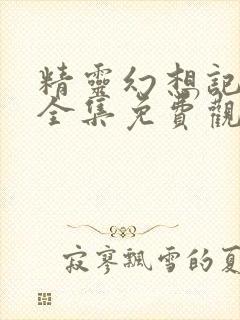 精靈幻想記
全集免費觀
寂寥飄雪的夏